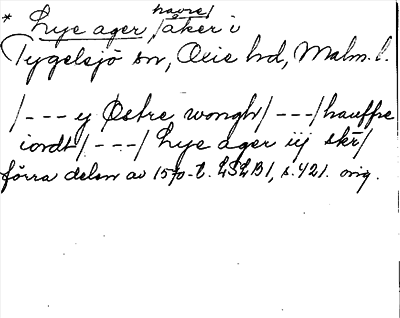 * Lye ager /havre/åker i
Tygelsjö sn, Oxie hd, Malm. l.
/---y Østre wongh/---/hauffre
iordt/---/ Lye ager iij skr/
förra delen av 1570-t. LSLB1, s. 421. orig.